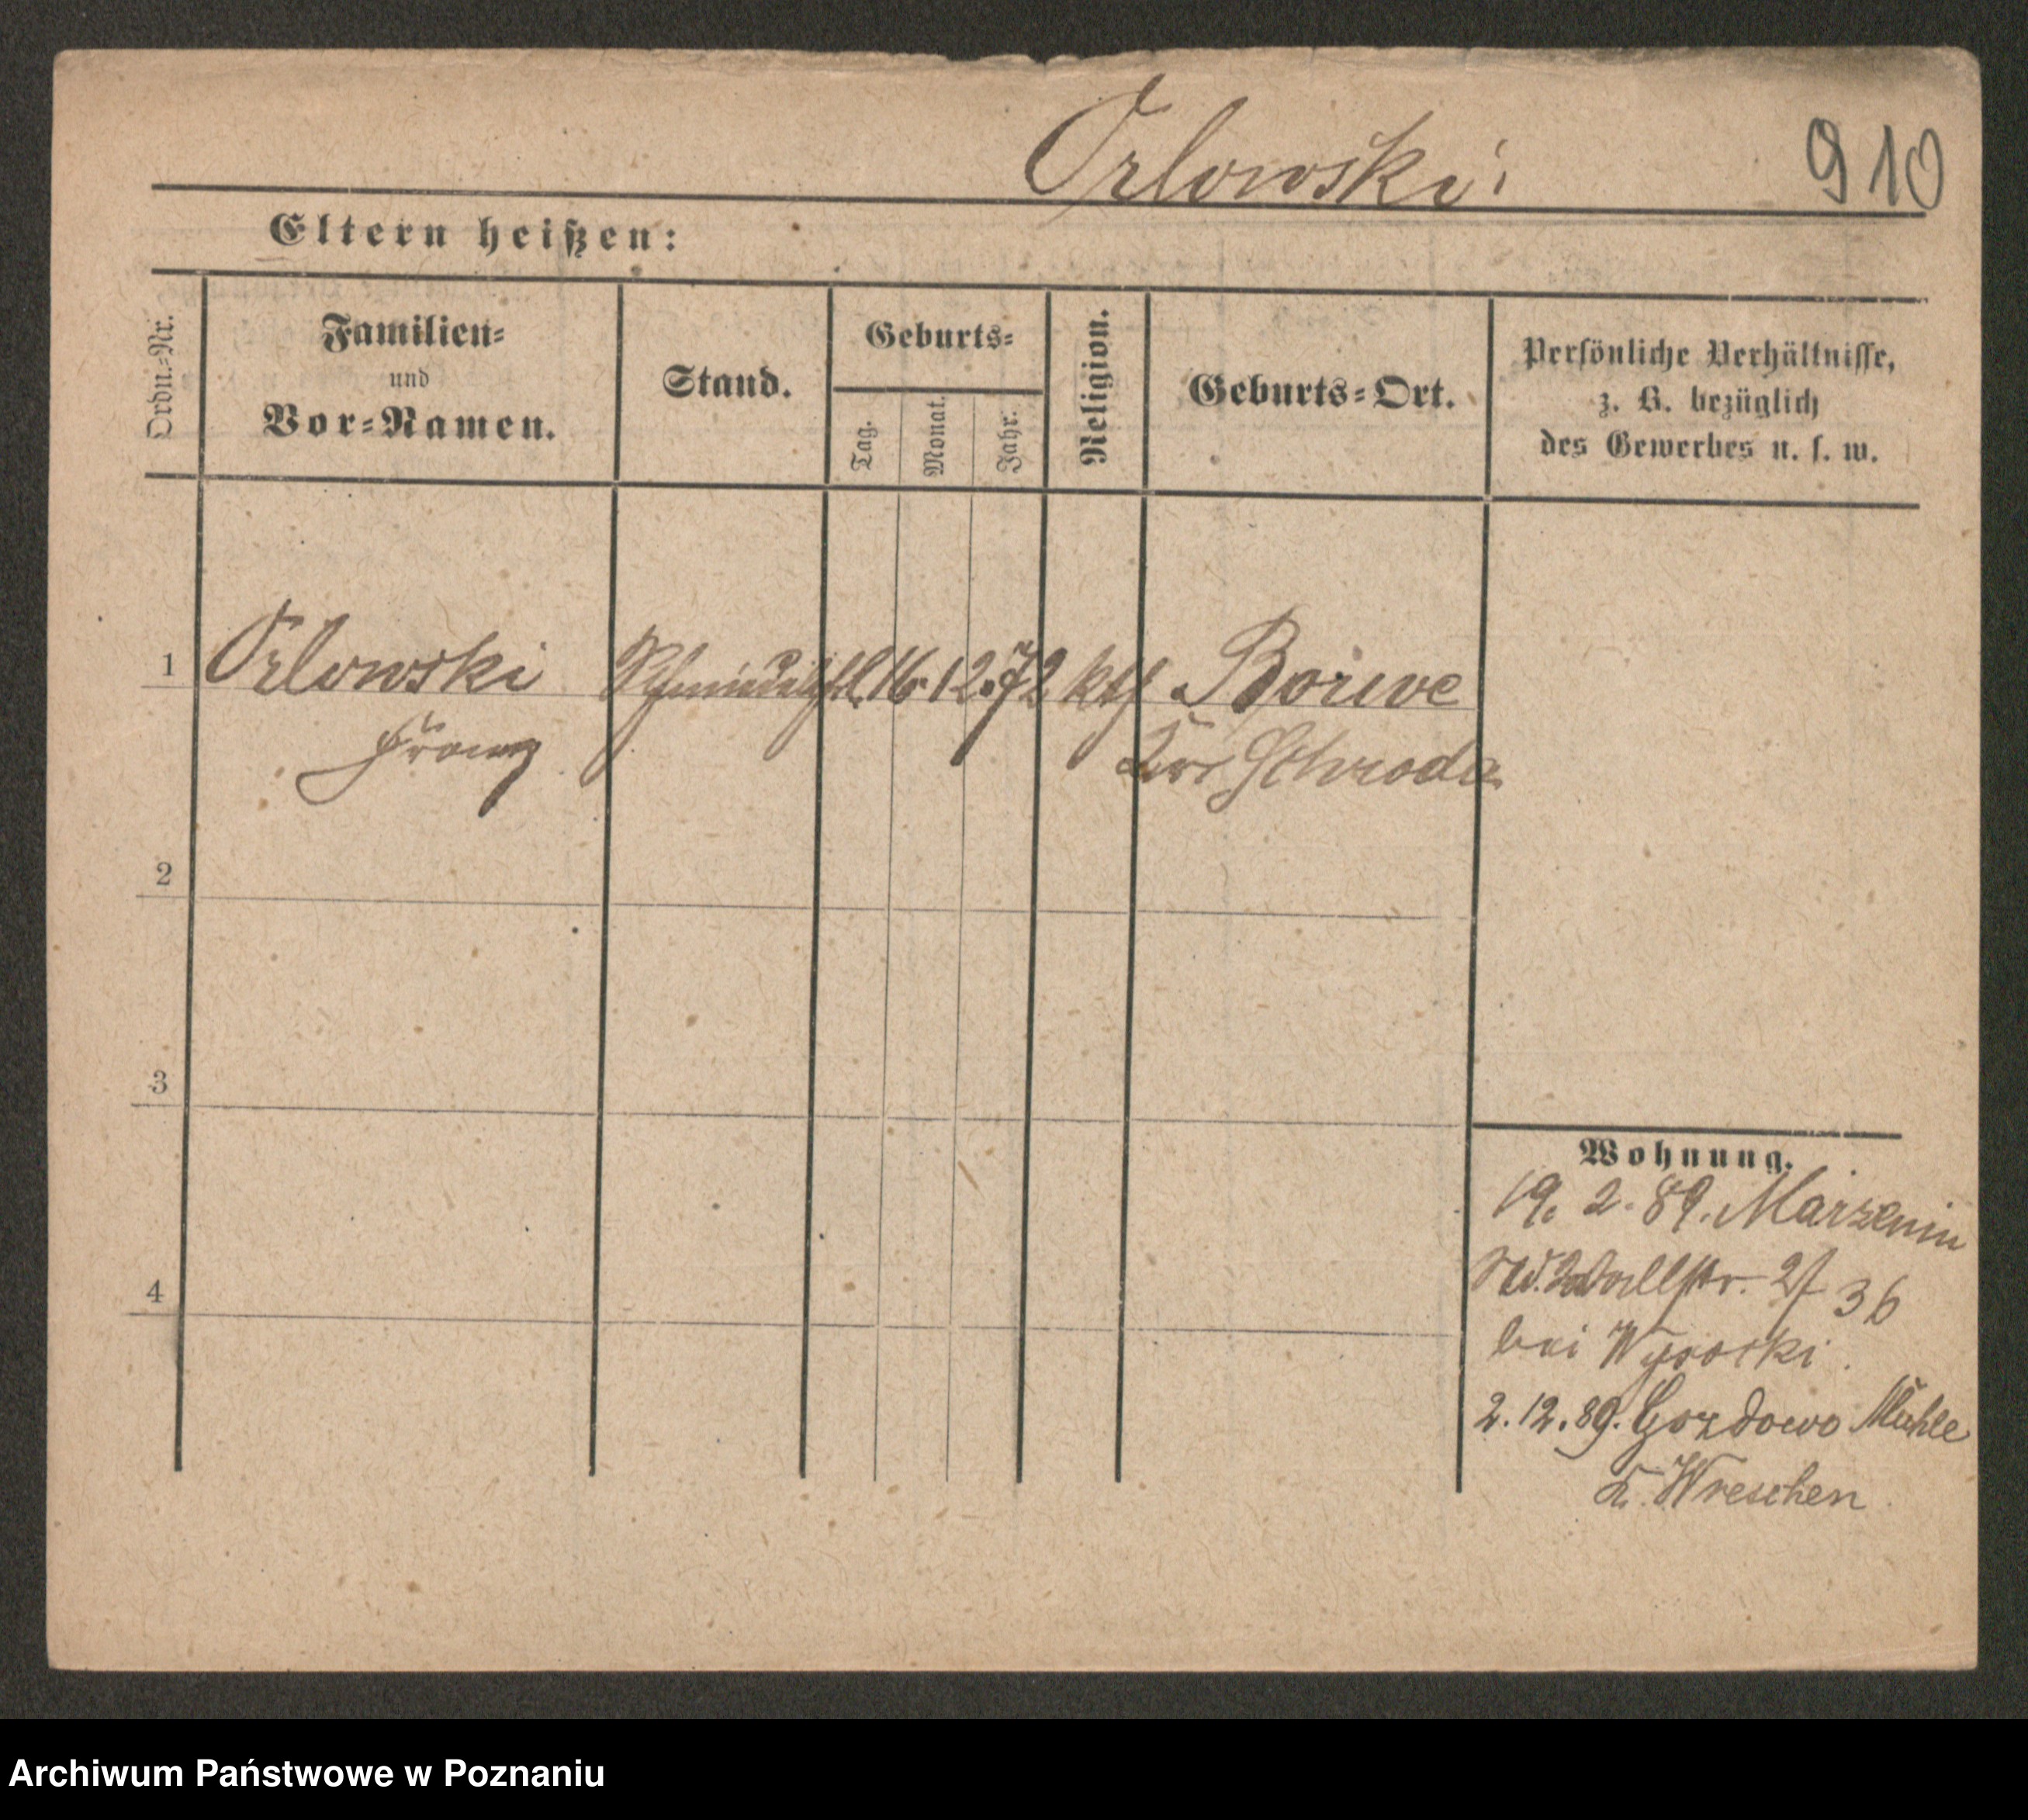 Orlowski
910
Eltern heißen:
Ordn.=Nr.
Familien=
und
Vor=Namen.
Stand.
Geburts=
Tag.
Monat.
Jahr.
Religion.
Geburts=Ort.
Persönliche Verhältnisse,
z. B. bezüglich
des Gewerbes u. s. w.
1 Orlowski 16. 12. 72 kth
Franz Schroda
2
3
4
Wohnung.
19. 2. 89. Marzenin
36
bei Wysocki.
2. 12. 89. Gozdowo Mühle
K. Wreschen
Archiwum Państwowe w Poznaniu